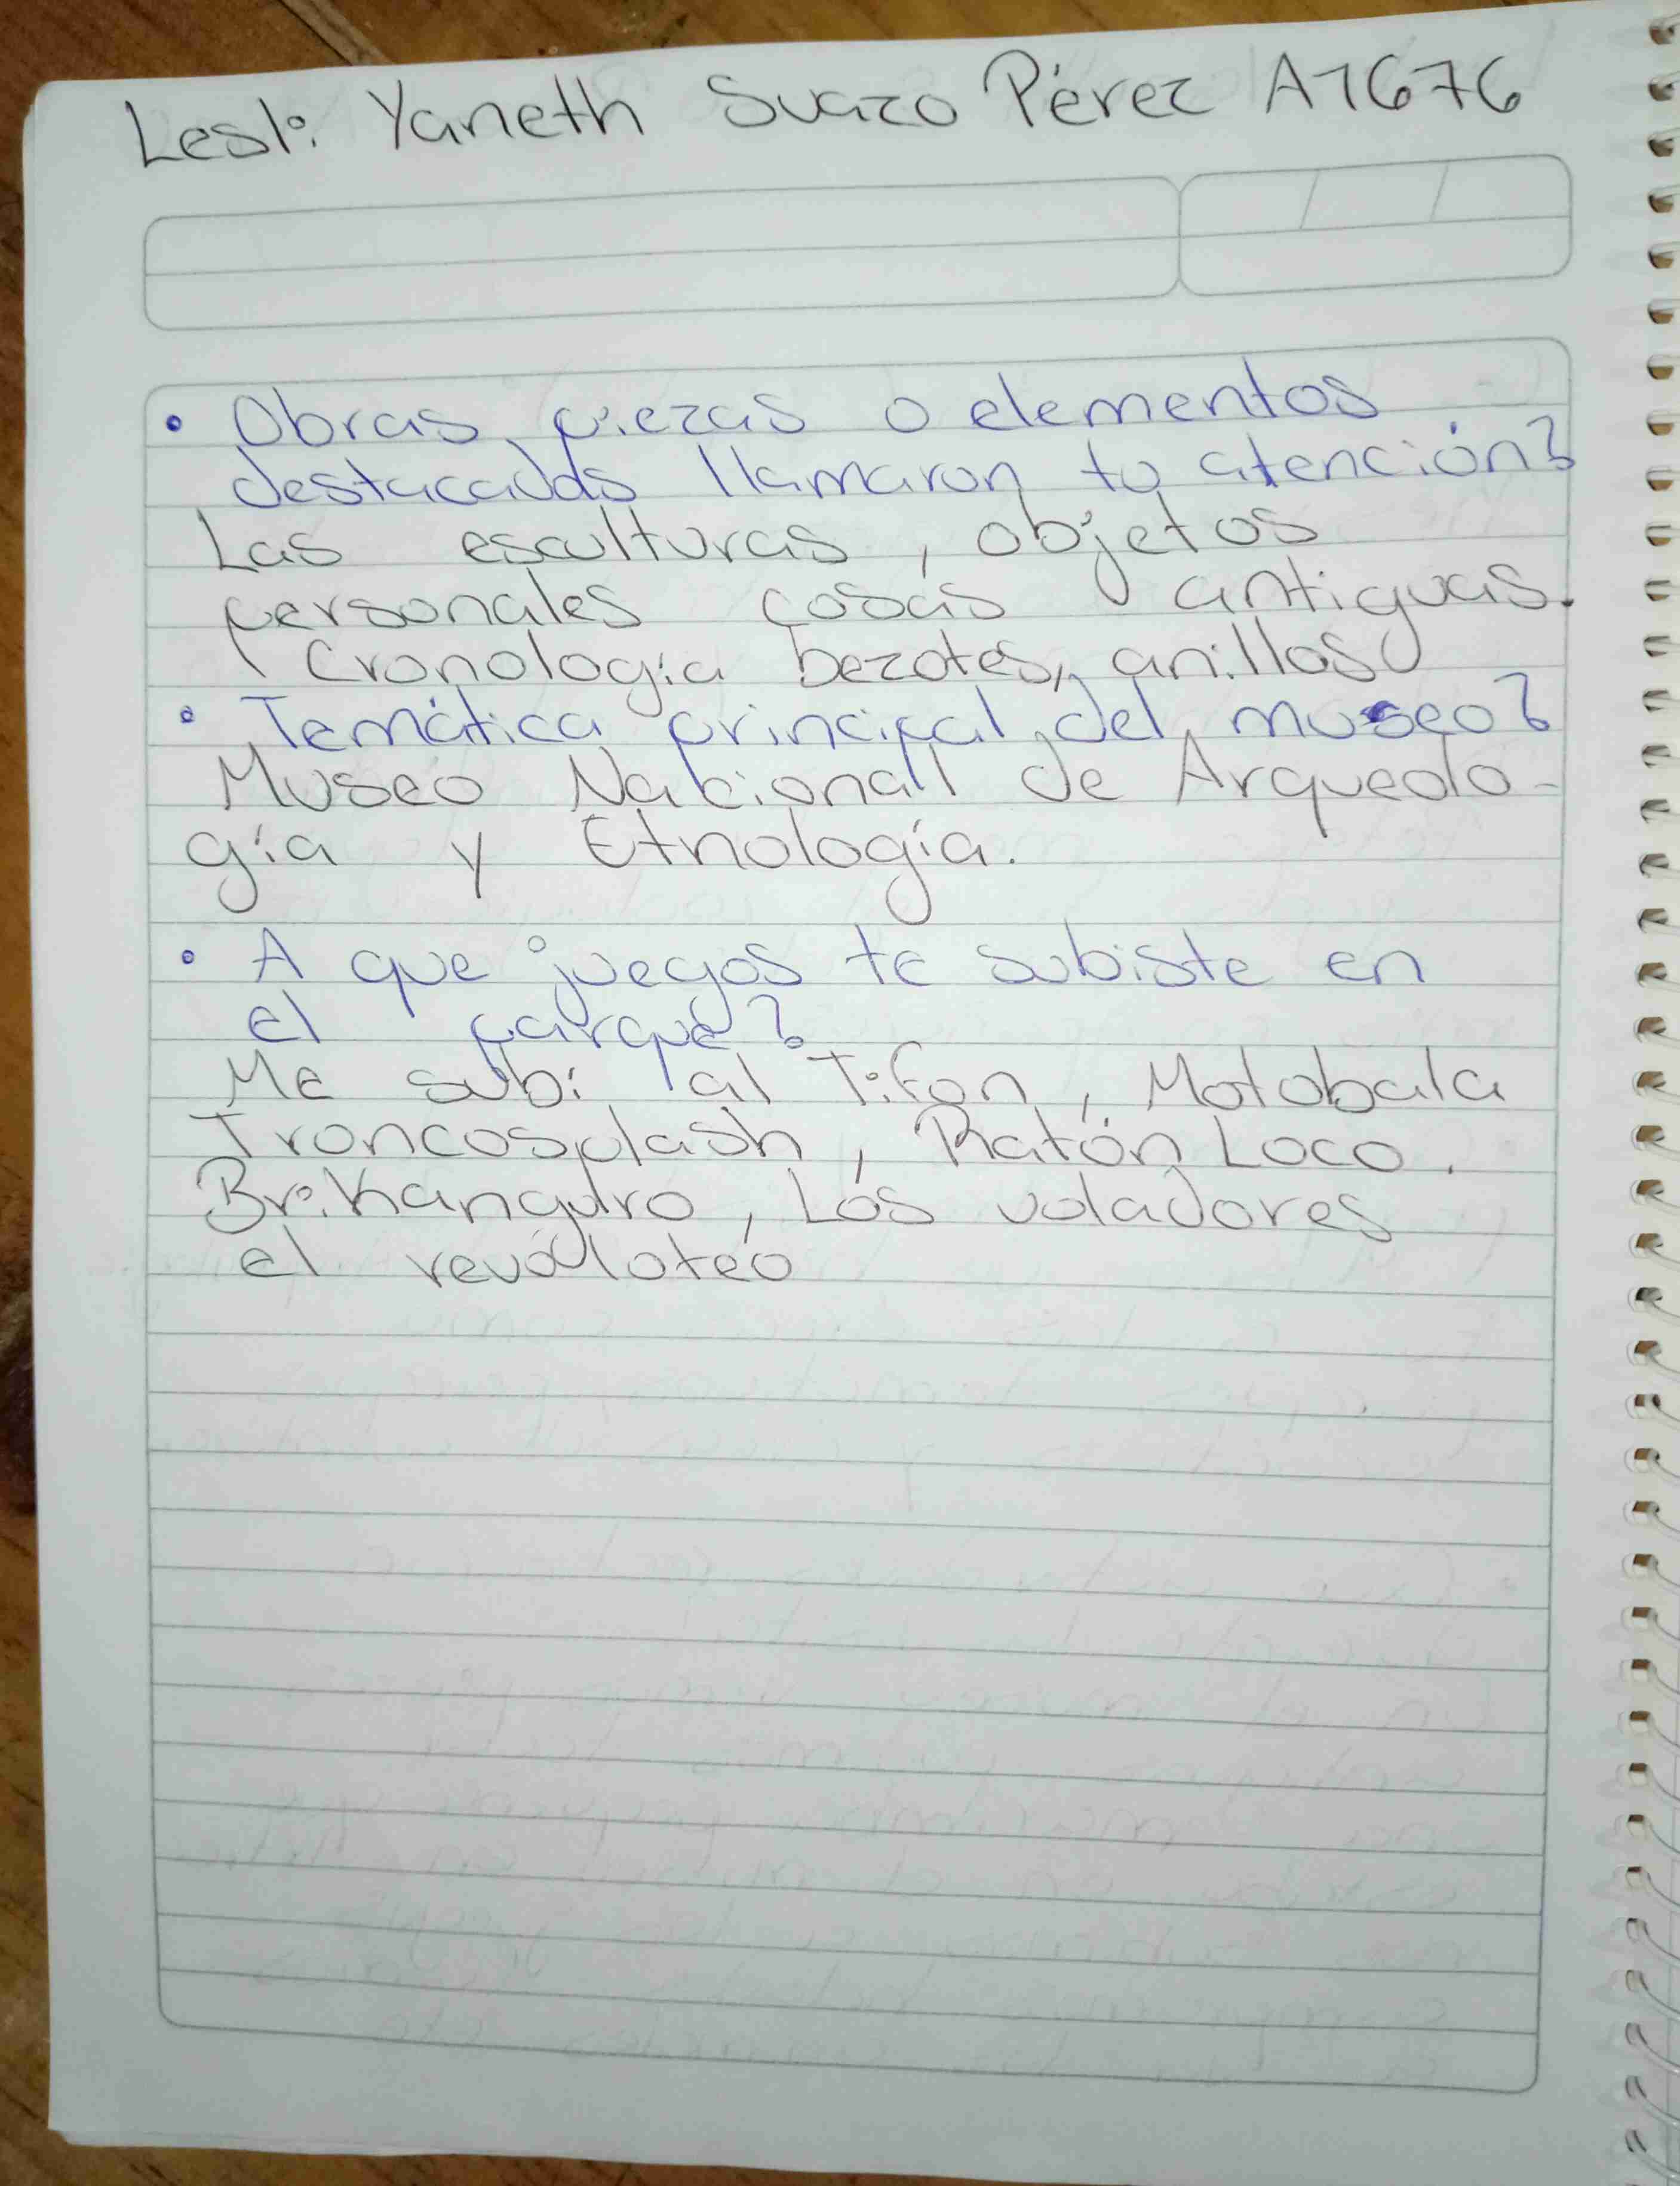 Lesli Yaneth Suazo Pérez A1676
• Obras, piezas o elementos
destacados llamaron tu atención?
Las esculturas, objetos
personales cosas antiguas.
Cronologia bezotes, anillos
• Temática principal del museo?
Museo Nacional de Arqueolo-
gía y Etnología.
• A que juegos te subiste en
el parque?
Me subi al Tifon, Motobala
Troncosplash, Ratón Loco.
Brikanguro, Los voladores
el revoloteo